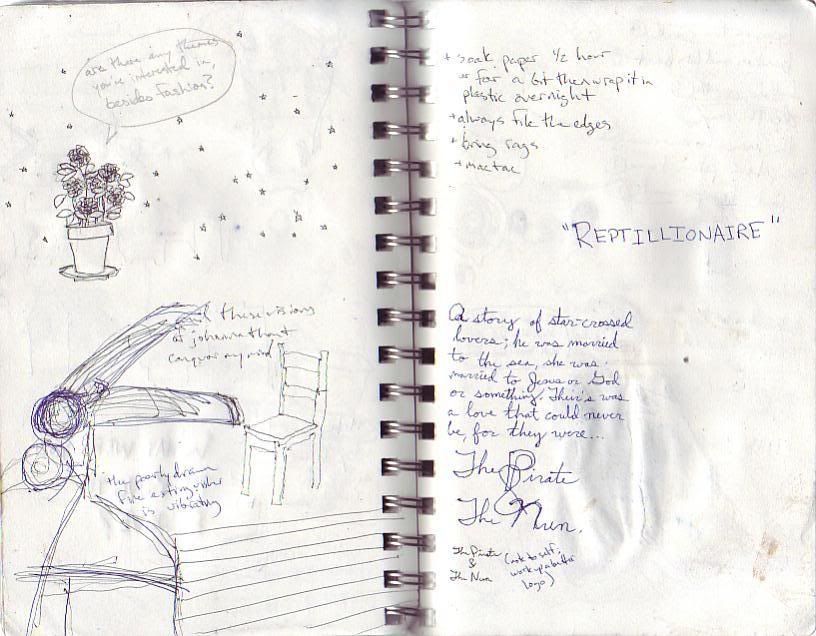 are there any themes
you're interested in,
besides Fashion?
these visions
of johanna that
conquor my mind
the poorly drawn
fire extinguisher
is vibrating
+ soak paper 1/2 hour
or for a bit then wrap it in
plastic overnight
+ always file the edges
+ bring rags
+ mactac
"REPTILLIONAIRE"
A story of star-crossed
lovers; he was married
to the sea, she was
married to Jesus or God
or something. Their's was
a love that could never
be, for they were...
The Pirate
&
The Nun.
The Pirate
&
The Nun
(note to self,
work up a better
logo)